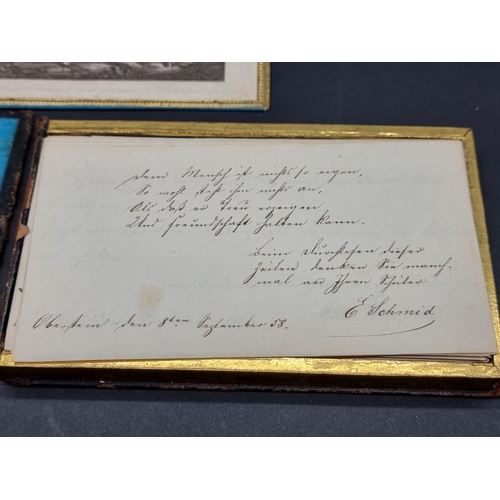 Dem Mensch ist nichts so eigen,
So wohl steht ihm nichts an,
Als daß er Treu erzeigen
Und Freundschaft halten kann.
Beim Durchsehen dieser
Zeilen denken Sie manch-
mal an Ihren Schüler
E Schmid
Oberstein den 8ten September 58.